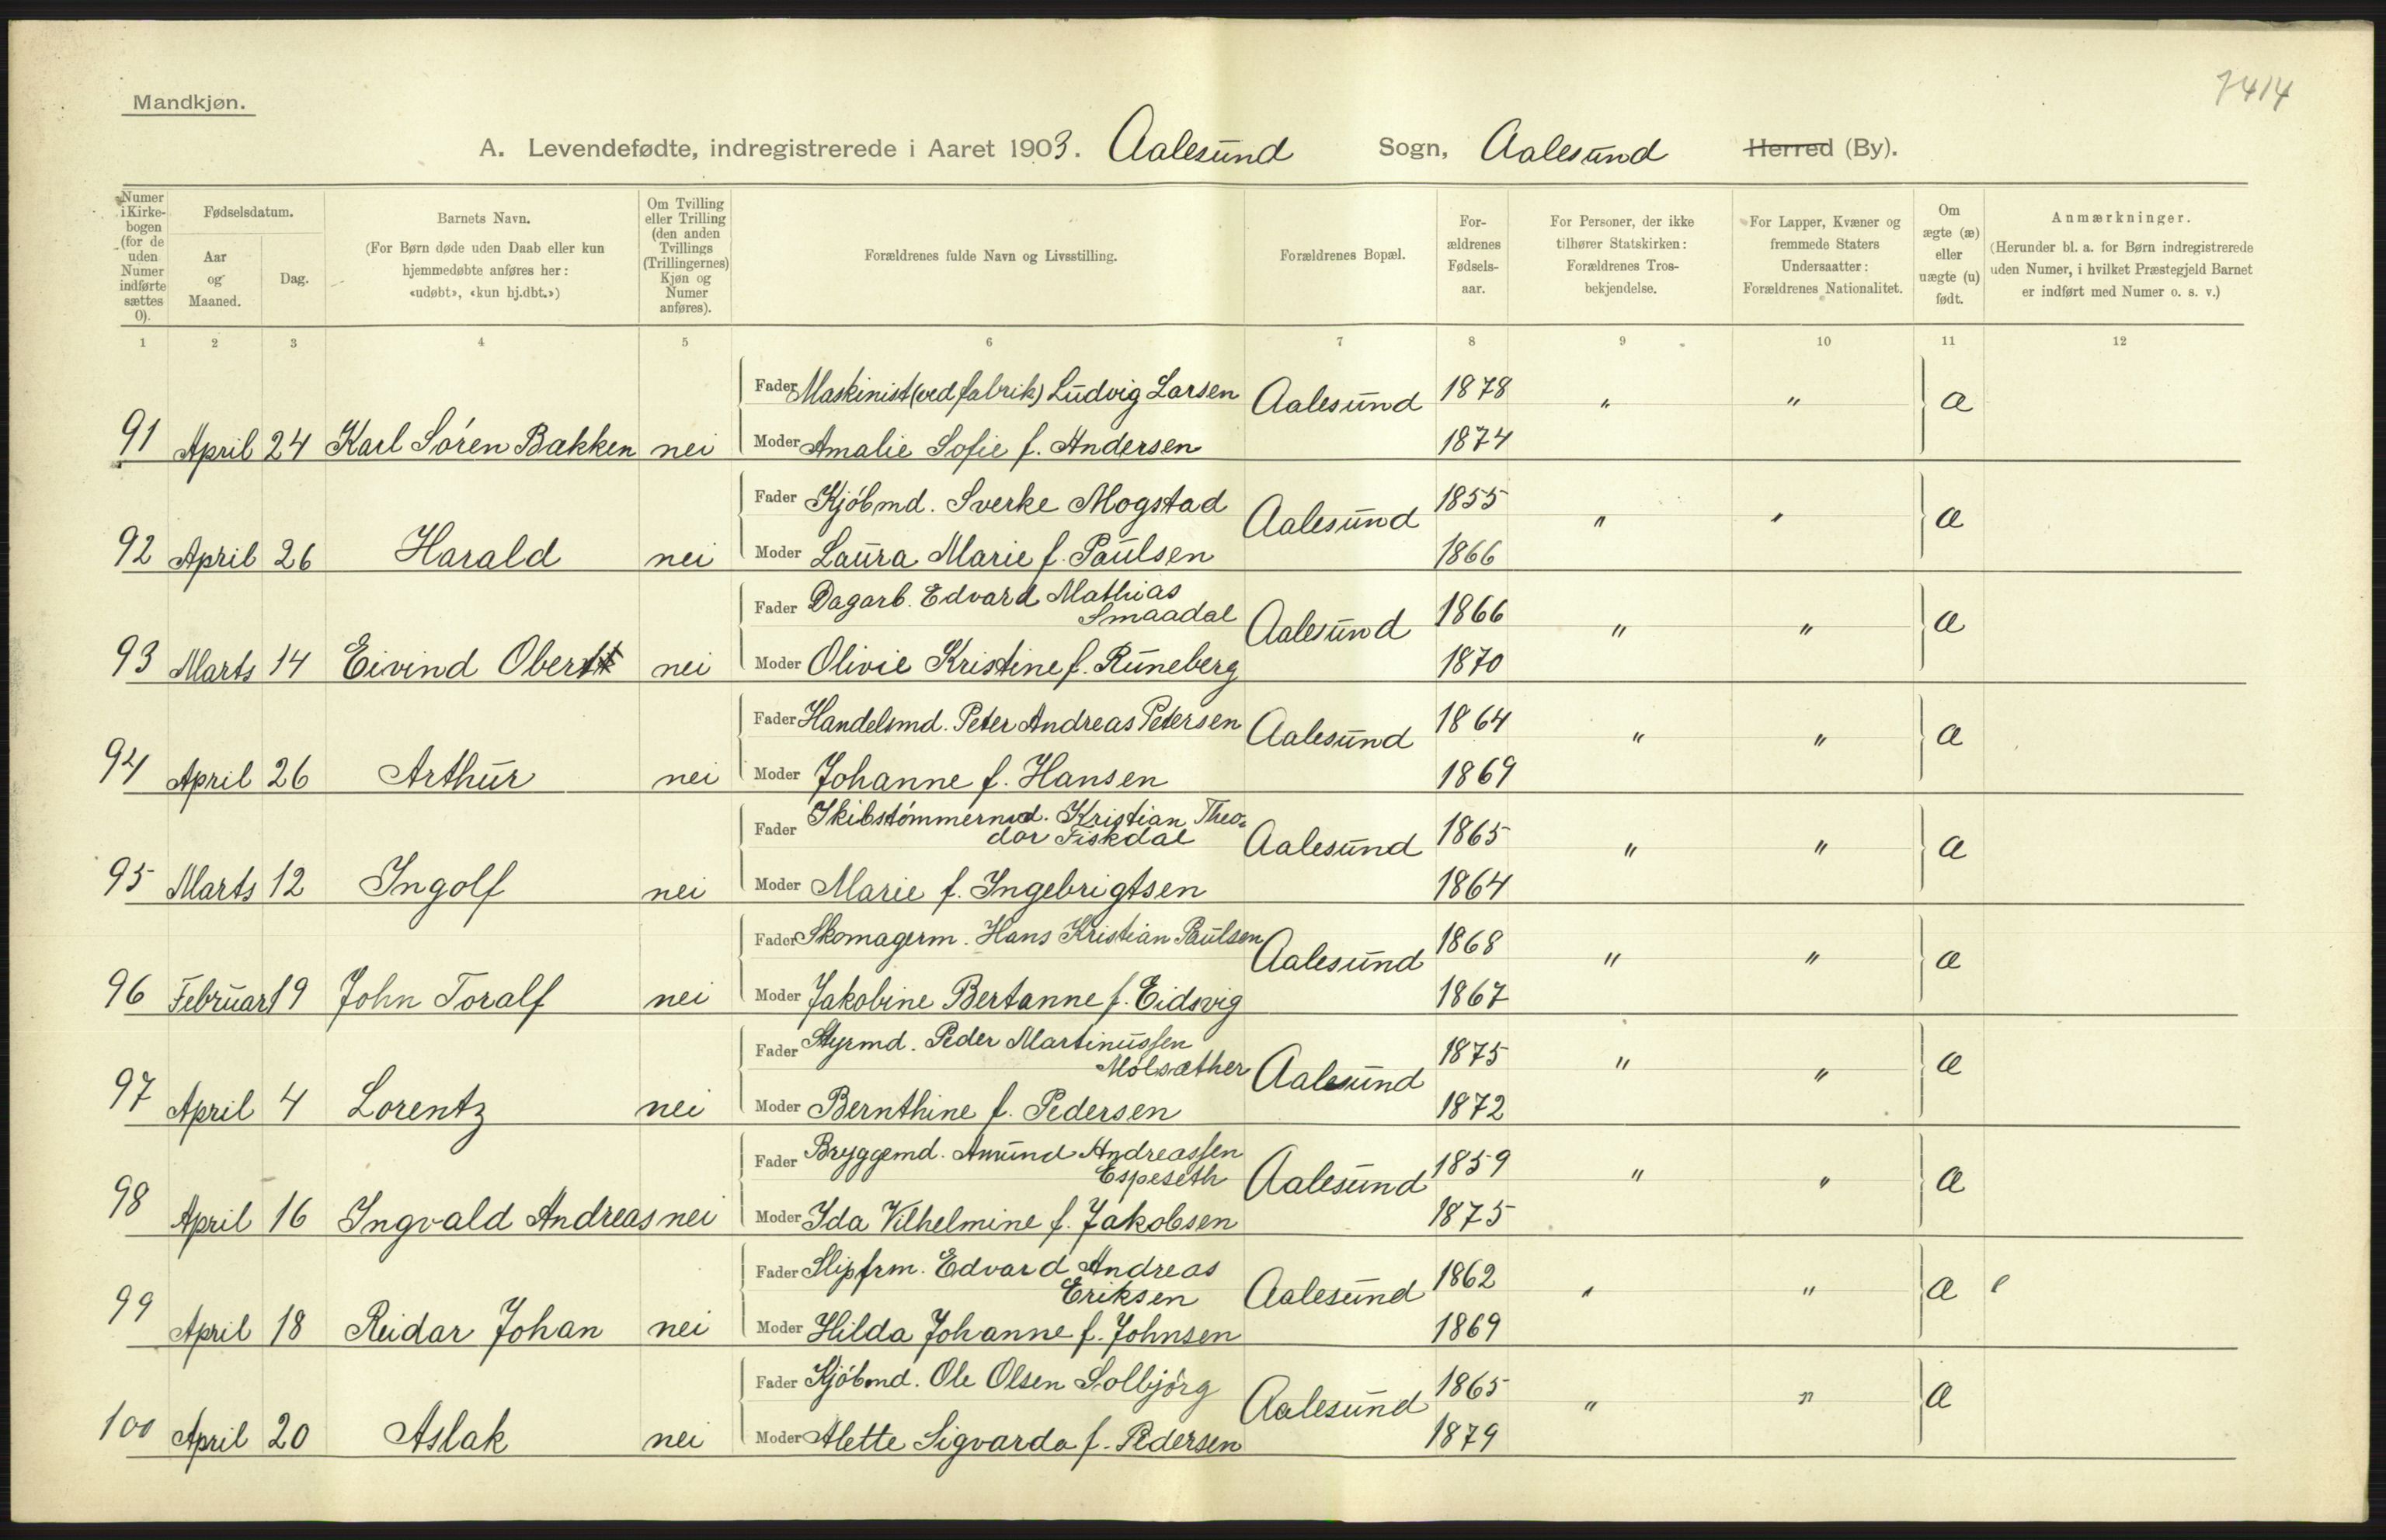 7414
Mandkjøn.
A. Levendefødte, indregistrerede i Aaret 1903. Aalesund Sogn, Aalesund Herred (By).
Numer i Kirkebogen (for de uden Numer indførte sættes 0).
Fødselsdatum.
Aar og Maaned.
Dag.
Barnets Navn.
(For Børn døde uden Daab eller kun hjemmedøbte anføres her: «udøbt», «kun hj.dbt.»)
Om Tvilling eller Trilling (den anden Tvillings (Trillingernes) Kjøn og Numer anføres).
Forældrenes fulde Navn og Livsstilling.
Forældrenes Bopæl.
Forældrenes Fødselsaar.
For Personer, der ikke tilhører Statskirken: Forældrenes Trosbekjendelse.
For Lapper, Kvæner og fremmede Staters Undersaatter: Forældrenes Nationalitet.
Om ægte (æ) eller uægte (u) født.
Anmærkninger.
(Herunder bl. a. for Børn indregistrerede uden Numer, i hvilket Præstegjeld Barnet er indført med Numer o. s. v.)
1 2 3 4 5 6 7 8 9 10 11 12
Fader Maskinist (ved fabrik) Ludvig Larsen Aalesund 1878 " " æ
91 April 24 Karl Sören Bakken nei Moder Amalie Sofie f. Andersen 1874
Fader Kjöbmd. Sverke Mogstad Aalesund 1855 " " æ
92 April 26 Harald nei Moder Laura Marie f. Paulsen 1866
Fader Dagarb. Edvard Mathias
Smaadal Aalesund 1866 " " æ
93 Marts 14 Eivind Obert nei Moder Olivie Kristine f. Runeberg 1870
Fader Handelsmd. Peter Andreas Petersen Aalesund 1864 " " æ
94 April 26 Arthur nei Moder Johanne f. Hansen 1869
Fader Skibstömmermd. Kristian Theo-
dor Fiskdal Aalesund 1865 " " æ
95 Marts 12 Ingolf nei Moder Marie f. Ingebrigtsen 1864
Fader Skomagerm. Hans Kristian Paulsen Aalesund 1868 " " æ
96 Februar 19 John Toralf nei Moder Jakobine Bertanne f. Eidsvig 1867
Fader Styrmd. Peder Martinussen
Molsæther Aalesund 1875 " " æ
97 April 4 Lorentz nei Moder Bernthine f. Pedersen 1872
Fader Bryggemd. Amund Andreassen
Espeseth Aalesund 1859 " " æ
98 April 16 Ingvald Andreas nei Moder Ida Vilhelmine f. Jakobsen 1875
Fader Slipfrm. Edvard Andreas
Eriksen Aalesund 1862 " " æ
99 April 18 Reidar Johan nei Moder Hilda Johanne f. Johnsen 1869
Fader Kjöbmd. Ole Olsen Solbjörg Aalesund 1865 " " æ
100 April 20 Aslak nei Moder Alette Sigvarda f. Pedersen 1879